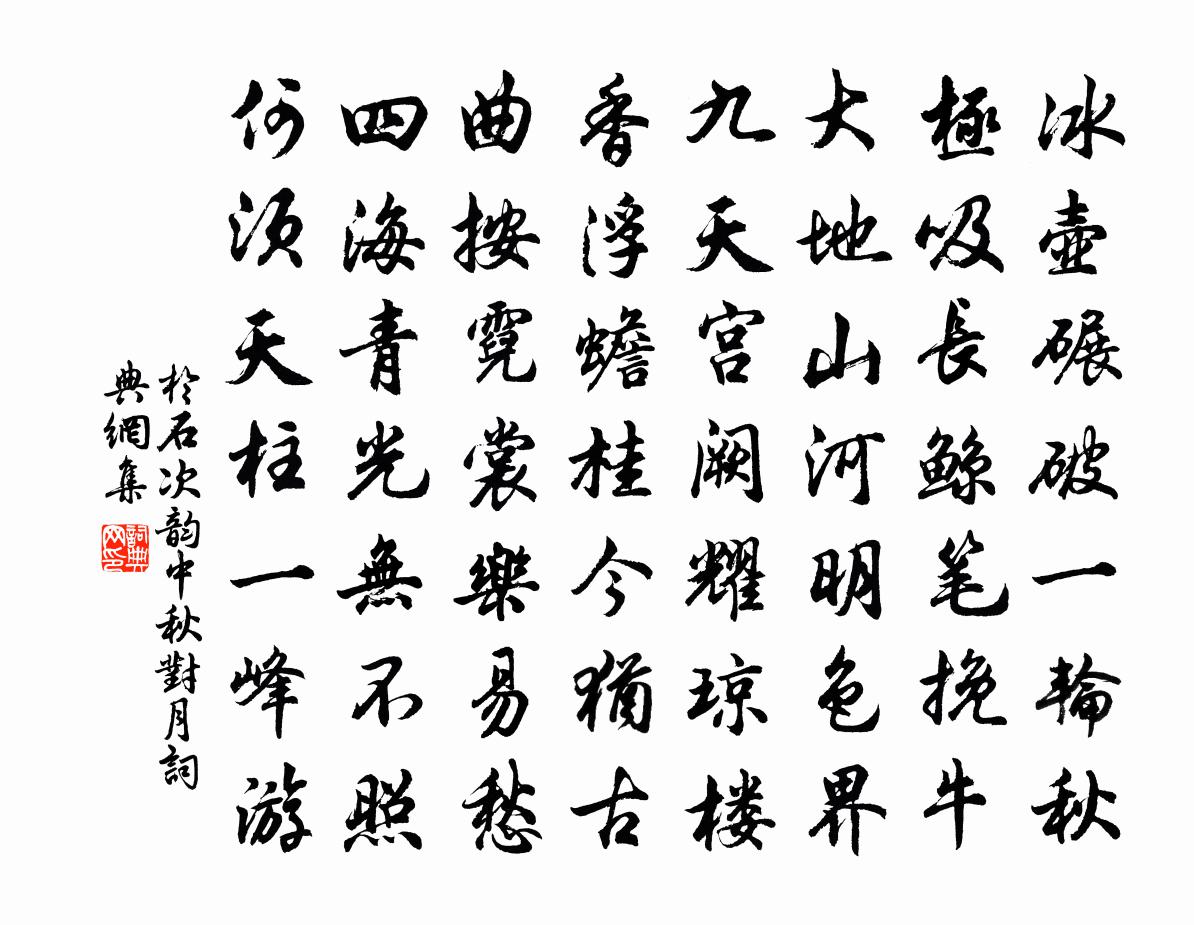 冰壺碾破一輪秋
極吸長鯨笔挽牛
大地山河明色界
九天宫阙耀琼楼
香浮蟾桂今猶古
曲按霓裳樂易愁
四海青光無不照
何须天柱一峰游
於石次韵中秋對月詞
典網集
詞典網印